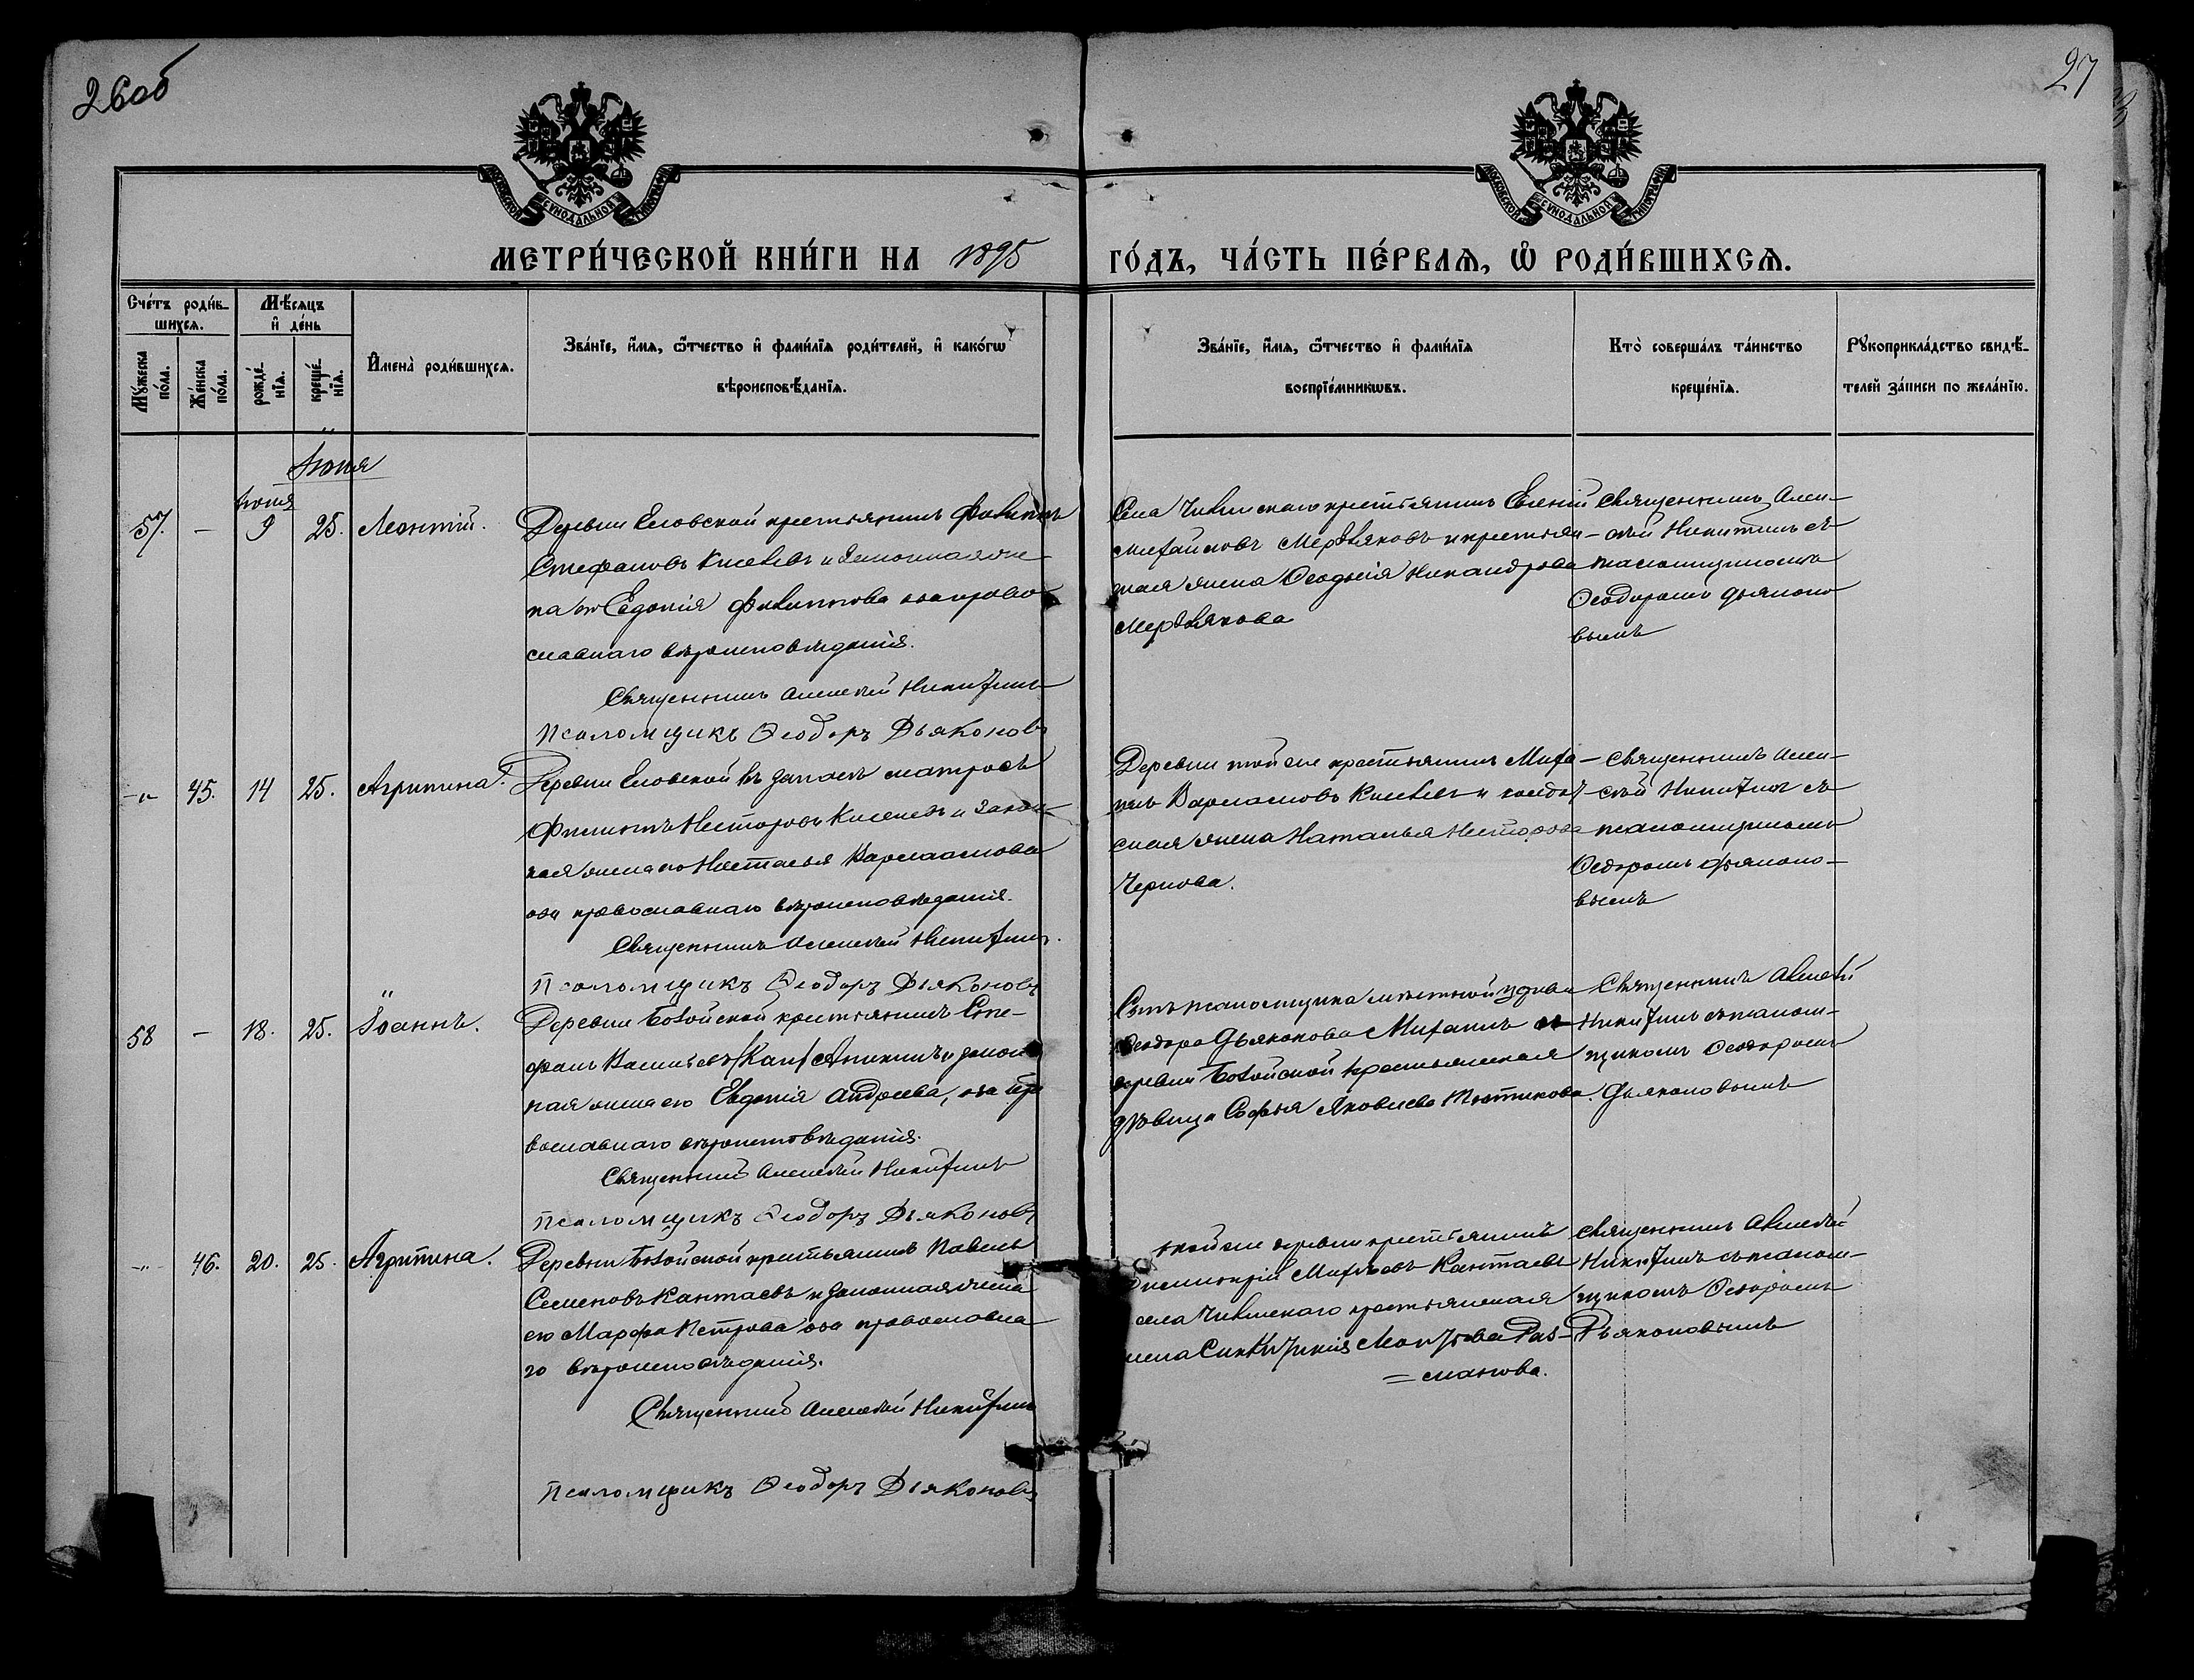 26об
27
МОСКОВСКОЙ СѴНОДАЛЬНОЙ ТИПОГРАФІИ
МОСКОВСКОЙ СѴНОДАЛЬНОЙ ТИПОГРАФІИ
МЕТРИ́ЧЕСКОЙ КНИ́ГИ НА 1895
ГО́ДЪ, ЧА́СТЬ ПЕ́РВАѦ, Ѡ҆ РОДИ́ВШИХСѦ.
Сче́тъ роди́в-
шихсѧ.
Мѣ́сѧцъ
и҆ де́нь
Мꙋ́жеска
по́ла.
Же́нска
по́ла.
рожде́-
нїѧ.
креще́-
нїѧ.
И҆мена̀ роди́вшихсѧ.
Зва́нїе, и҆́мѧ, ѻ҆́тчество и҆ фами́лїѧ роди́телей, и҆ како́гѡ
вѣроисповѣ́данїѧ.
Зва́нїе, и҆́мѧ, ѻ҆́тчество и҆ фами́лїѧ
воспрїе́мникѡвъ.
Кто̀ соверша́лъ та́инство
креще́нїѧ.
Рꙋкоприкла́дство свидѣ́-
телей за́писи по жела́нїю.
Іюня
Іюня
57. — 9 25. Леонтій.
Деревни Еловской крестьянинъ Филиппъ
Стефановъ Киселевъ и законная же-
на его Евдокія Филиппова оба право
славнаго вѣроисповѣданія.
Священникъ Алексѣй Никитинъ
Псаломщикъ Ѳеодоръ Дьяконовъ
крестьянинъ
Михайловъ Мердвяковъ и крестьян-
ская жена Ѳеодосія Никандрова
Мердвякова
Священникъ Алек-
сѣй Никитинъ съ
псаломщикомъ
Ѳеодоромъ Дьяконо
вымъ
-„- 45. 14 25. Агрипина.
Деревни Еловской въ запасѣ матросъ
Филиппъ Несторовъ Киселевъ и закон-
ная жена его Настасья Варлаамова
оба православнаго вѣроисповѣданія.
Священникъ Алексѣй Никитинъ.
Псаломщикъ Ѳеодоръ Дьяконовъ
Деревни той же крестьянинъ Миха-
илъ Варлаамовъ Киселевъ и
жена Наталья Несторова
Чернова.
Священникъ Алек-
сѣй Никитинъ съ
псаломщикомъ
Ѳеодоромъ Дьяконо-
вымъ
58 — 18. 25. Іоаннъ.
крестьянинъ Сте-
фанъ и закон
ная жена его Евдокія Андреева, оба пра
вославнаго вѣроисповѣданія.
Священникъ Алексѣй Никитинъ
Псаломщикъ Ѳеодоръ Дьяконовъ
Сынъ псаломщика мѣстной церкви
Ѳеодора Дьяконова Михаилъ и
деревни крестьянская
дѣвица Софья Яковлева Тютикова.
Священникъ Алексѣй
Никитинъ съ псалом-
щикомъ Ѳеодоромъ
Дьяконовымъ
-„- 46. 20. 25. Агрипина.
крестьянинъ Павелъ
Семеновъ Кантаевъ и законная жена
его Марфа Петрова оба православна
го вѣроисповѣданія.
Священникъ Алексѣй Никитинъ
Псаломщикъ Ѳеодоръ Дьяконовъ
той же деревни крестьянинъ
Кантаевъ
села крестьянская
жена Синклитикія Раз-
= манова.
Священникъ Алексѣй
Никитинъ съ псалом-
щикомъ Ѳеодоромъ
Дьяконовымъ